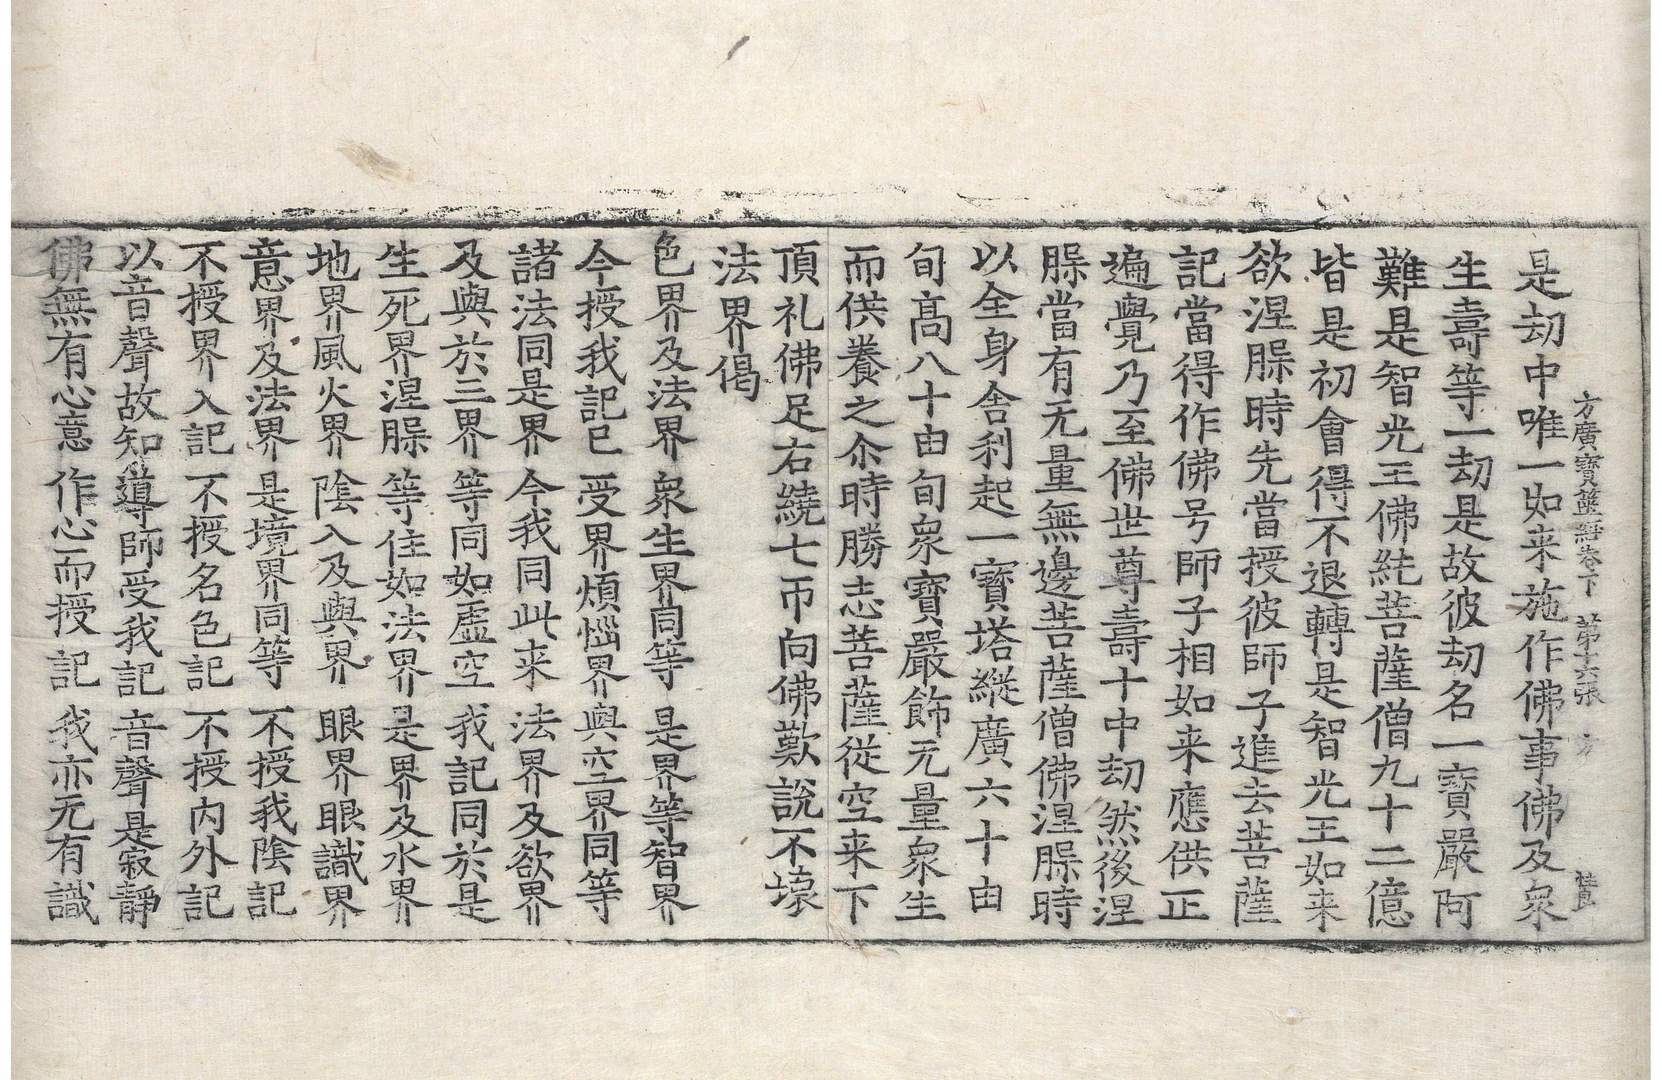 方廣寶篋經卷下 第十六張 方
是劫中唯一如来施作佛事佛及衆
生壽等一劫是故彼劫名一寶嚴阿
難是智光王佛純菩薩僧九十二億
皆是初會得不退轉是智光王如来
欲涅槃時先當授彼師子進去菩薩
記當得作佛号師子相如来應供正
遍覺乃至佛世尊壽十中劫然後涅
槃當有无量無邊菩薩僧佛涅槃時
以全身舎利起一寶塔縱廣六十由
旬髙八十由旬衆寶嚴飾无量衆生
而供養之尒時勝志菩薩從空来下
頂礼佛足右繞七帀向佛歎說不壞
法界偈
色界及法界 衆生界同等 是界等智界
今授我記已 受界煩惱界 與空界同等
諸法同是界 今我同此来 法界及欲界
及與於三界 等同如虚空 我記同於是
生死界涅槃 等住如法界 是界及水界
地界風火界 陰入及與界 眼界眼識界
意界及法界 是境界同等 不授我陰記
不授界入記 不授名色記 不授内外記
以音聲故知 導師受我記 音聲是寂静
佛無有心意 作心而授記 我亦无有識